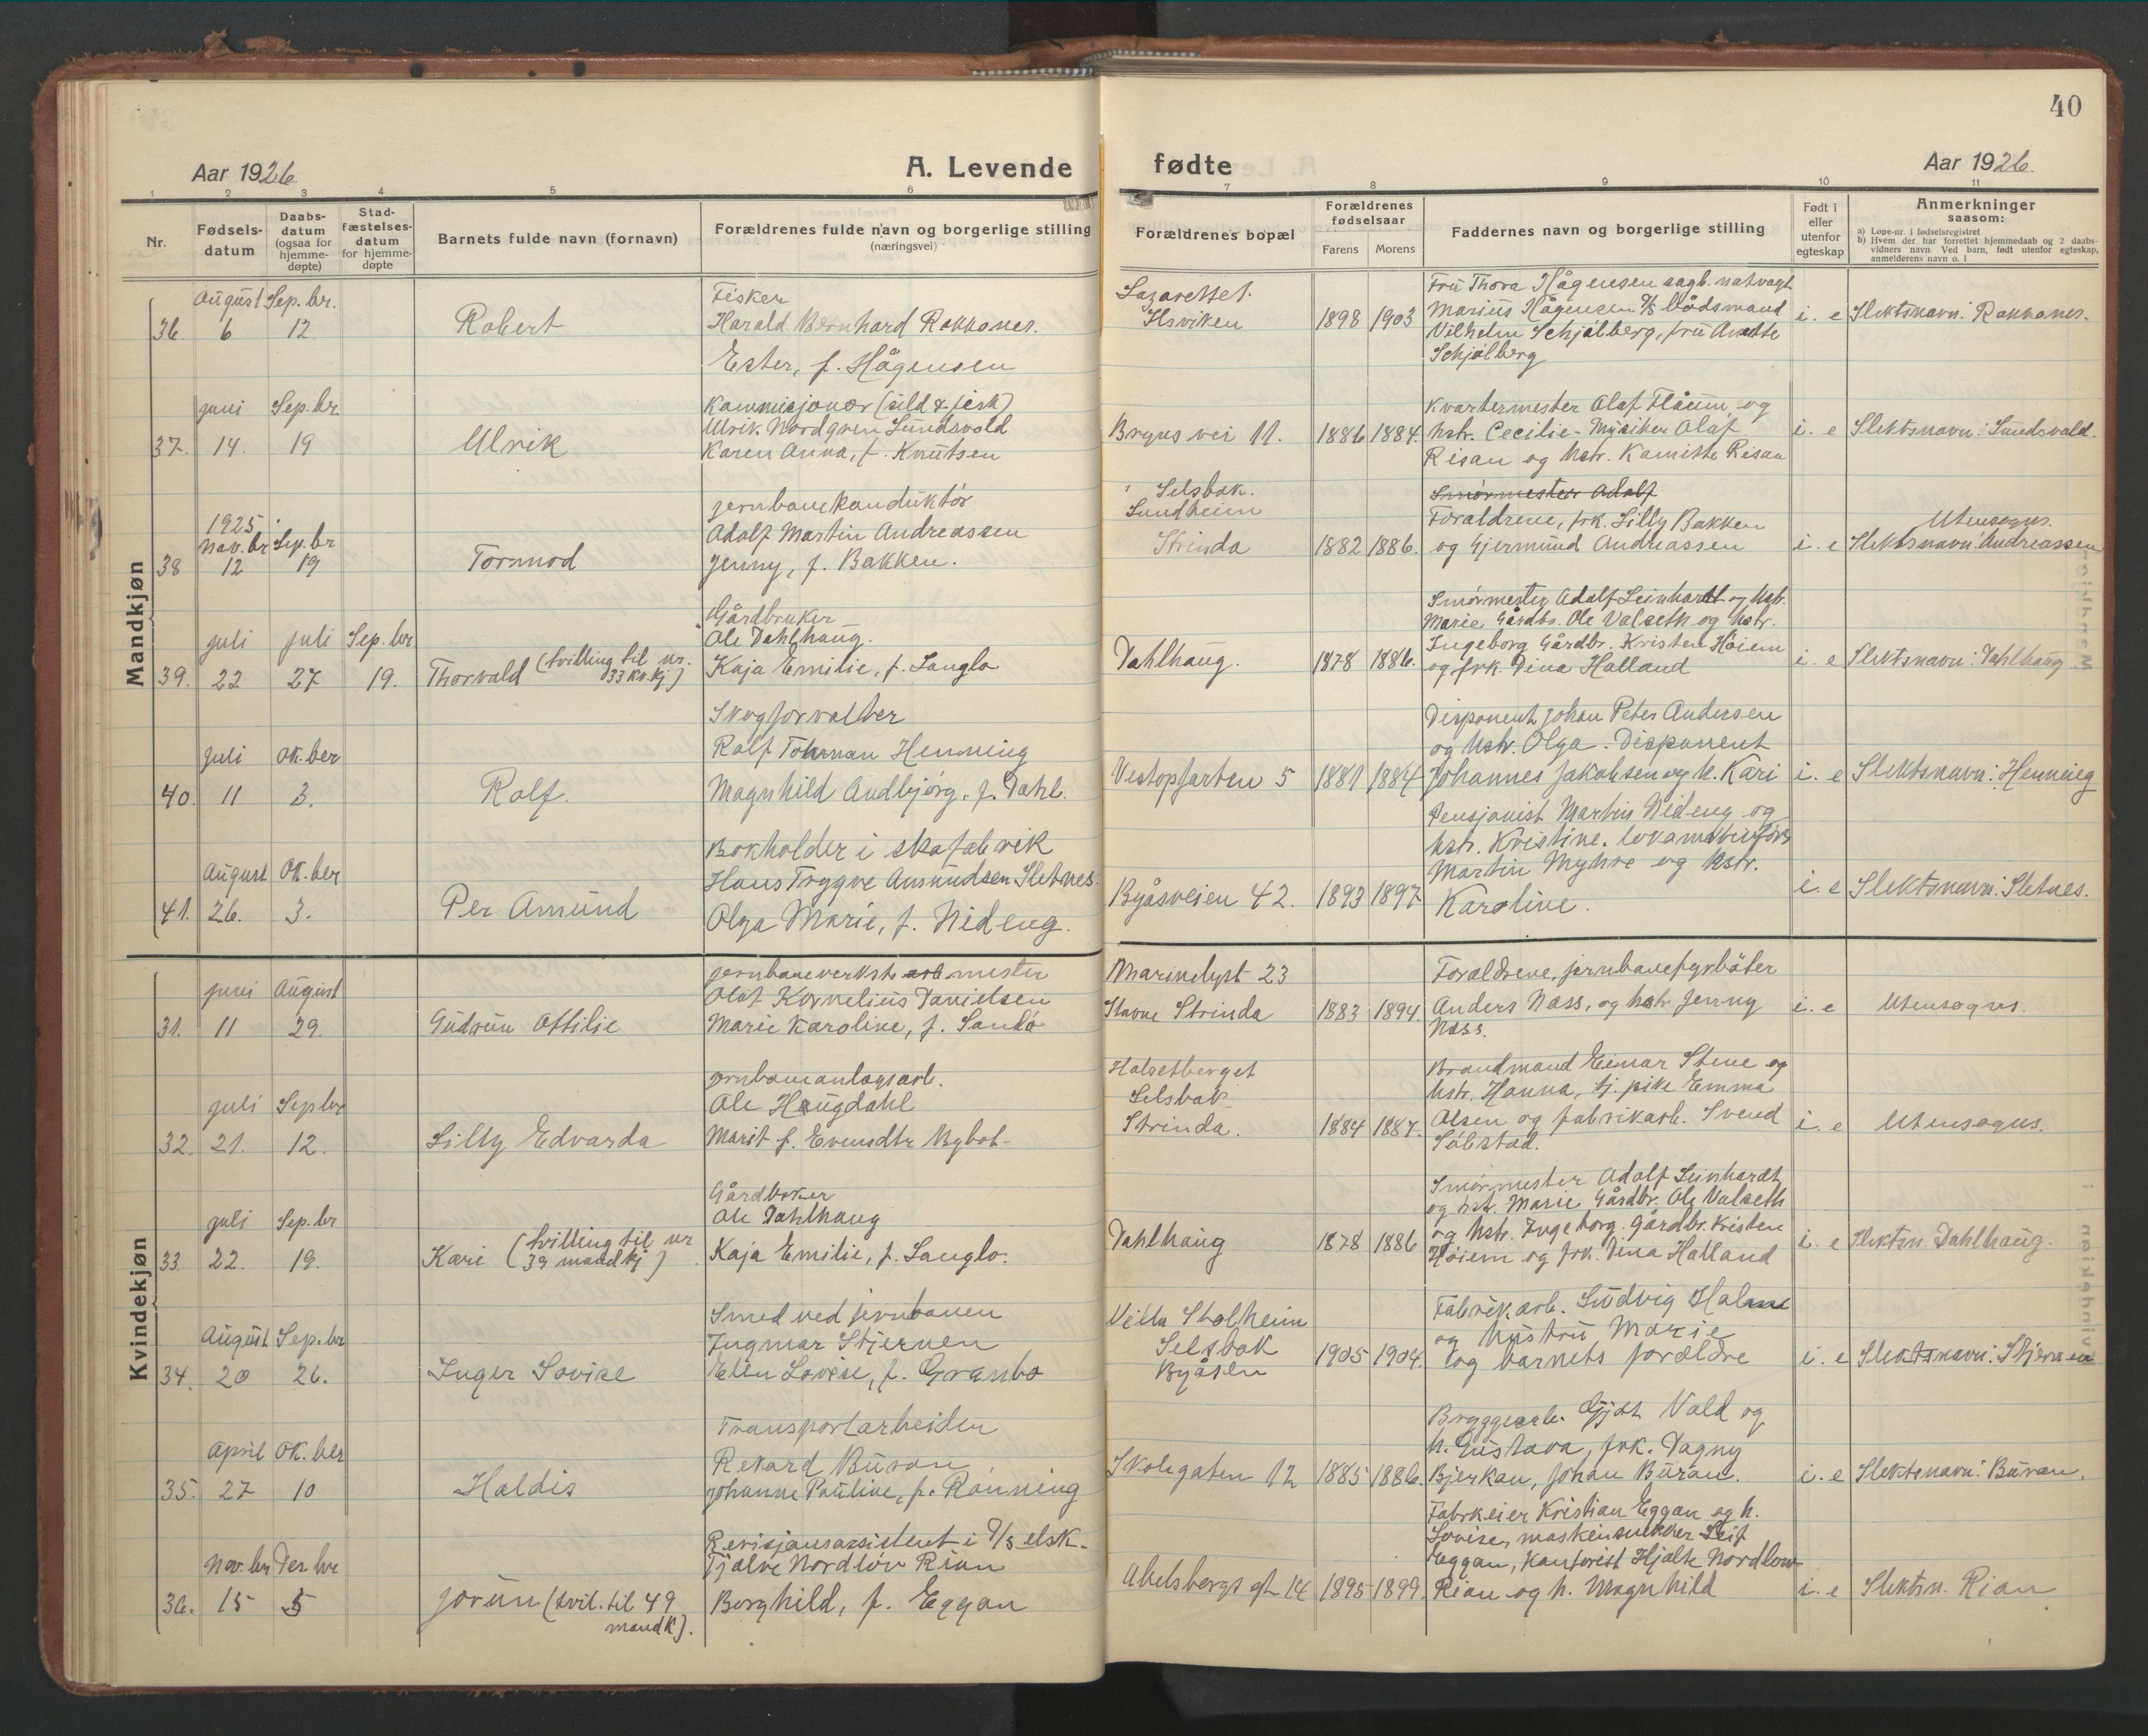 40
Aar 1926
A. Levende fødte
Aar 1926.
1 2 3 4 5 6 7 8 9 10 11
Nr.
Fødsels-
datum
Daabs-
datum
(ogsaa for
hjemme-
døpte)
Stad-
fæstelses-
datum
for hjemme-
døpte
Barnets fulde navn (fornavn)
Forældrenes fulde navn og borgerlige stilling
(næringsvei)
Forældrenes bopæl
Forældrenes
fødselsaar
Farens Morens
Faddernes navn og borgerlige stilling
Født i
eller
utenfor
egteskap
Anmerkninger
saasom:
a) Løpe-nr. i fødselsregistret
b) Hvem der har forrettet hjemmedaab og 2 daabs-
vidners navn. Ved barn, født utenfor egteskap,
anmelderens navn o. l
Mandkjøn
36.
August
6
Sep.br.
12
Robert
Fisker
Harald Bernhard Rokkones.
Ester, f. Hågensen
Lazarettet.
Ilsviken
1898 1903
Fru Thora Hågensen sagb. natvagt
Marius Hågensen bådsmand
Vilhelm Schjølberg, fru Anette
Schjølberg
i. e
Slektsnavn: Rokkones.
37.
juni
14.
Sep.br
19
Ulrik
Kommisjonær (sild & fisk)
Ulrik Nordgren Sundsvold
Karen Anna, f. Knutsen
Bryns vei 11.
1886 1884.
Kvartermester Olaf Flåum, og
hstr. Cecilie - Musiker Olaf
Risan og hstr. Kamitte Risan
i. e
Slektsnavn: Sundsvald.
38
1925
Nov.br
12
Sep.br
19
Tormod
jernbanekonduktør
Adolf Martin Andreassen
Jenny, f. Bakken.
Selsbak.
Sundheim
Strinda
1882 1886.
Smørmester Adolf
Forældrene, frk. Lilly Bakken
og Gjermund Andreassen
i. e
Utensogns.
Slektsnavn: Andreassen
39.
juli
22
juli
27
Sep.br
19.
Thorvald (tvilling til nr.
33 kv.kj.)
Gårdbruker
Ole Dahlhaug.
Kaja Emilie, f. Langlo
Dahlhaug.
1878 1886.
Smørmester Adolf Leinhardt og hstr.
Marie Gårdbr. Ole Valseth og hstr.
Ingeborg Gårdbr. Kristen Høiem
og frk. Dina Halland
i. e
Slektsnavn: Dahlhaug
40.
juli
11
Ok.ber
3.
Rolf.
Skogforvalter
Rolf Tohrman Henning
Magnhild Audbjørg, f. Dahl.
Vestopfarten 5
1881 1884
Disponent Johan Peter Andersen
og hstr. Olga. Disponent
Johannes Jakobsen og h. Kari
i. e
Slektsnavn: Henning
41.
August
26.
Ok.ber
3.
Per Amund
Bokholder i skofabrik
Hans Trygve Amundsen Sletnes.
Olga Marie, f. Nideng.
Byåsveien 42.
1893 1897
Pensjonist Martin Nideng og
hstr. Kristine. lokomotivfører
Martin Myhre og hstr.
Karoline.
i. e
Slektsnavn: Sletnes.
Kvindekjøn
31.
juni
11
August
29.
Gudrun Ottilie
jernbaneverkst. arb mester
Olaf Kornelius Danielsen
Marie Karoline, f. Sandø
Marinelyst 23
Havne Strinda
1883 1894.
Forældrene, jernbanefyrbøter
Anders Næss, og hstr Jenny
Næss.
i. e
Utensogns.
32.
juli
21.
Sepbr
12.
Lilly Edvarda
jernbaneanlægsarb.
Ole Haugdahl
Marit f. Evensdtr Nybot-
Halsetberget
Selsbak
Strinda.
1884 1887.
Brandmand Einar Stene og
hstr. Hanna, tj. pike Emma
Olsen og fabrikarb. Svend
Søbstad.
i. e
Utensogns.
33
juli
22.
Sep.br
19.
Kari (tvilling til nr
39 mandkj)
Gårdbrker
Ole Dahlhaug
Kaja Emilie, f. Langlo.
Dahlhaug
1878 1886
Smørmester Adolf Leinhardt
og hst. Marie Gårdbr. Ole Valseth
og hstr. Ingeborg. Gårdbr. Kristen
Høiem og frk. Dina Halland
i. e
Slektsn. Dahlhaug.
34.
August
20
Sep.br
26.
Inger Lovise
Smed ved jernbanen
Ingmar Stjernen
Elin Lovise, f. Granbo
Villa Stolheim
Selsbak
Byåsen
1905 1904.
Fabrik.arb. Ludvig
og hustru Marie
og barnets forældre
i. e
Slektsnavn: Stjernen
35.
April
27
Ok.ber
10
Haldis
Transportarbeider
Rekard Buran
Johanne Pauline, f. Rønning
Skolegaten 12
1885 1886.
Bryggearb. Gjøt Vold og
h. Gustava, frk. Dagny
Bjerkan, Johan Buran.
i. e
Slektsnavn: Buran.
36.
Nov.br
15
Des.br
5
Jorun (tvil. til 49
mandk).
Revisjonsassistent i T/s elsk.
Tjalve Nordløv Rian
Borghild, f. Eggan
Abelsbergs gt 14
1895 1899.
Fabrkeier Kristian Eggan og h.
Lovise, maskensnekker Leif
Eggan, kontorist Hjalte Nordløw
Rian og h. Magnhild
i. e
Slektsn. Rian